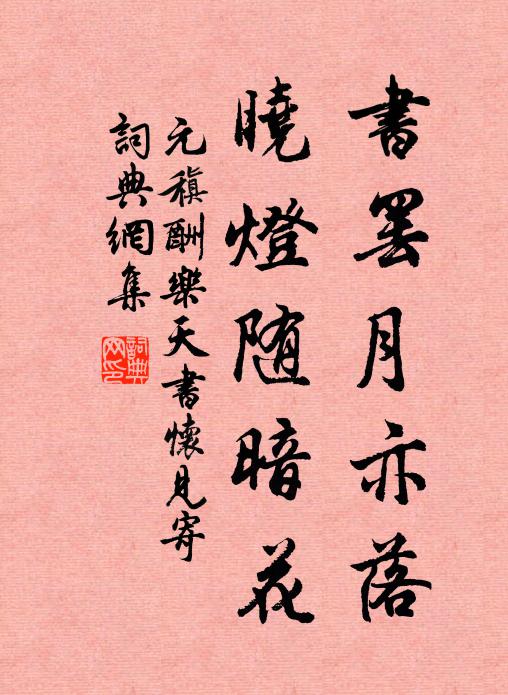 書罢月亦落
曉燈随暗花
元稹酬樂天書懷見寄
詞典網集
詞典網印